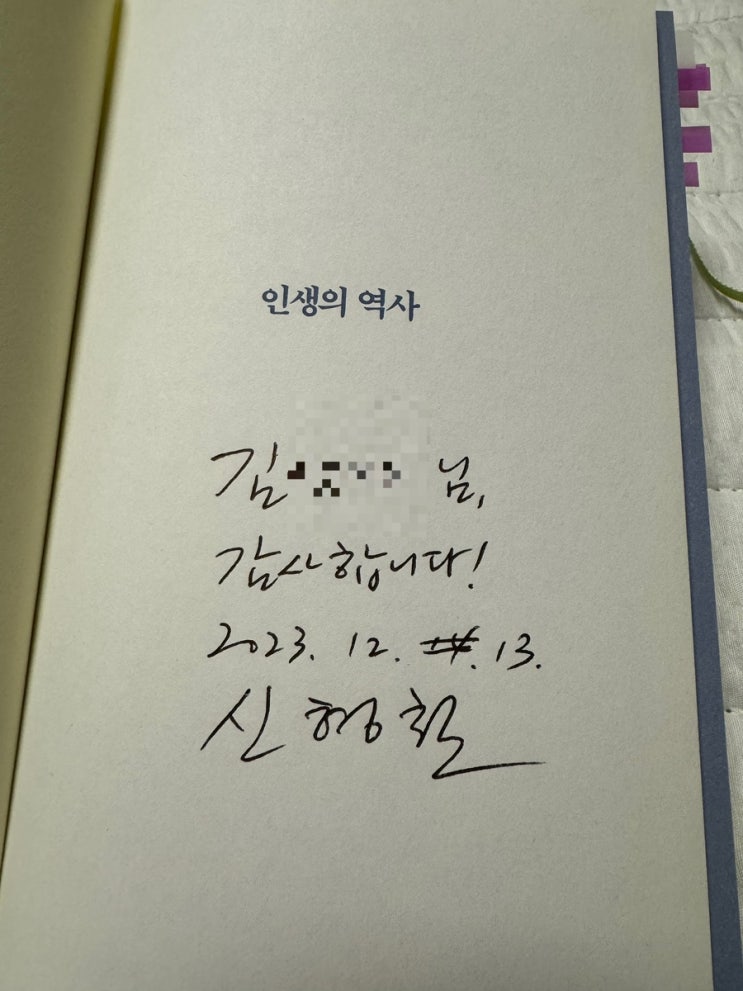 인생의 역사
김 님,
감사합니다!
2023. 12. 13.
신형철